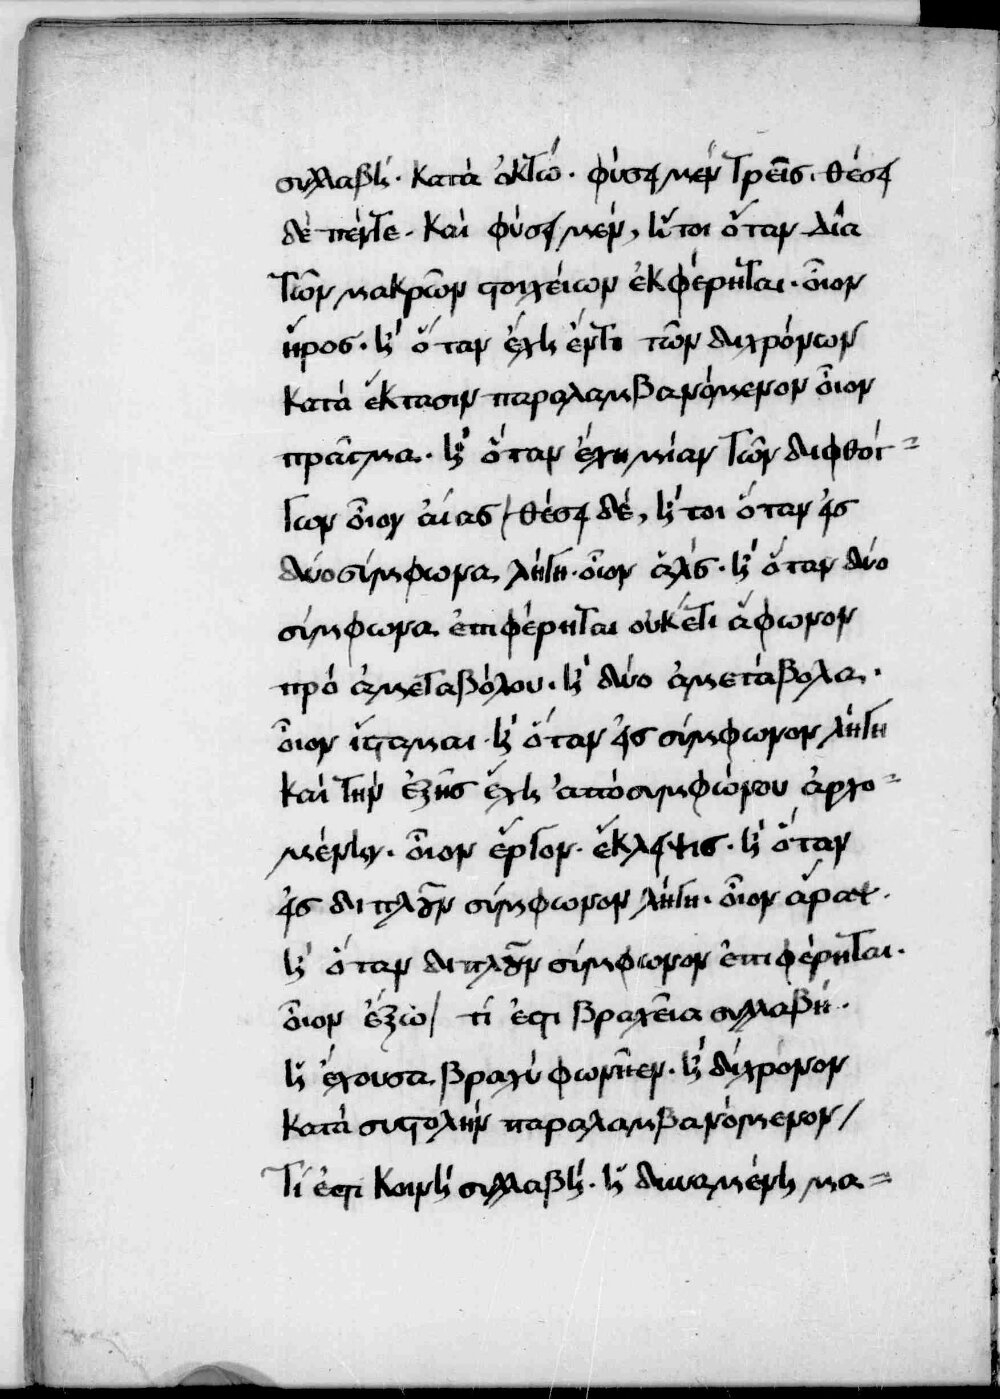 συλλαβή. κατὰ ὀκτώ. φύσει μὲν τρεῖς. θέσει
δὲ πέντε. καὶ φύσει μὲν, ἤτοι ὅταν διὰ
τῶν μακρῶν στοιχείων ἐκφέρηται. οἷον
ἥρος. ἢ ὅταν ἔχη ἕν τι τῶν διχρόνων
κατὰ ἔκτασιν παραλαμβανόμενον οἷον
πρᾶγμα. ἢ ὅταν ἔχη μίαν τῶν διφθόγ=
γων οἷον αἴας / θέσει δὲ, ἤτοι ὅταν εἰς
δύο σύμφωνα λήγη. οἷον ἅλς. ἢ ὅταν δύο
σύμφωνα ἐπιφέρηται οὐκέτι ἄφωνον
πρὸ ἀμεταβόλου. ἢ δύο ἀμετάβολα.
οἷον ἵσταμαι. ἢ ὅταν εἰς σύμφωνον λήγη
καὶ τὴν ἑξῆς ἔχη ἀπὸ συμφώνου ἀρχο=
μένην. οἷον ἔργον. ἔκλειψις. ἢ ὅταν
εἰς διπλοῦν σύμφωνον λήγη. οἷον ἅραξ.
ἢ ὅταν διπλοῦν σύμφωνον ἐπιφέρηται.
οἷον ἔξω / τί ἐστι βραχεῖα συλλαβή.
ἡ ἔχουσα βραχὺ φωνῆεν. ἢ δίχρονον
κατὰ συστολὴν παραλαμβανόμενον /
Τί ἐστι κοινὴ συλλαβή. ἡ δυναμένη μα=